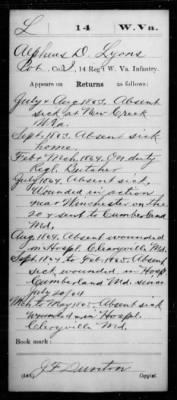 L 14 W. Va.
Alpheus D. Lyons
Pvt., Co. I, 14 Reg't W. Va. Infantry.
Appears on Returns as follows:
July & Aug 1863. Absent
sick at New Creek
W Va.
Sept. 1863. Absent sick
home.
Feb & Mch. 1864. On duty
Regt. Butcher
July 1864. Absent sick,
Wounded in action
near Winchester on the
20 & sent to Cumberland
Md.
Aug 1864. Absent wounded
in Hospl. Clarysville Md.
Sept. 1864 to Feb. 1865. Absent
sick, wounded in Hosp.
Cumberland Md. since
July 20/64
Mch. to May 1865. Absent sick
wounded in Hospl.
Clarysville Md.
Book mark:
J F Dunton
(546) Copyist.